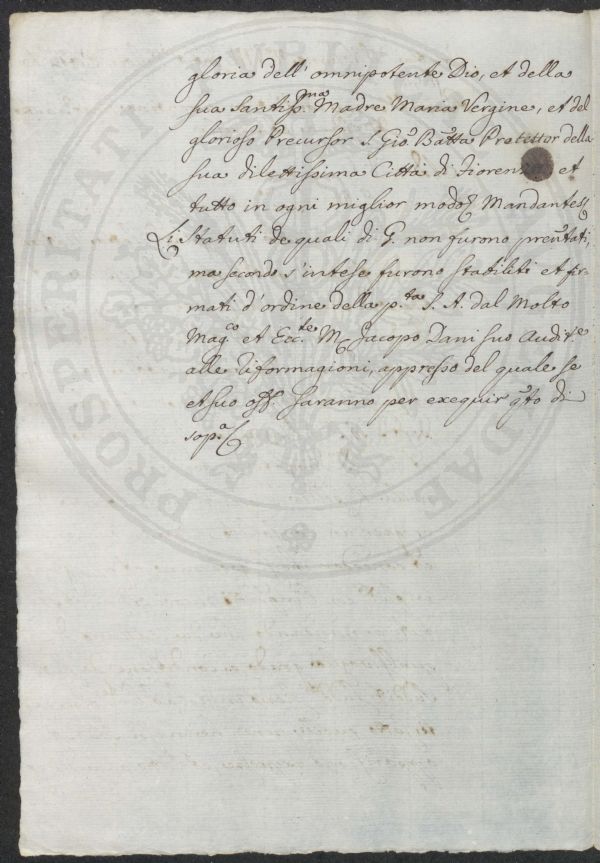 gloria dell' omnipotente Dio, et della
sua Santiss.ma Madre Maria Vergine, et del
glorioso Precursor S. Gio Batta Protettor della
sua dilettissima Città di Fioren et
tutto in ogni miglior modo Mandantes
Li Statuti de quali di G. non furono presentati,
ma secondo s'intese furono stabiliti et fir-
mati d'ordine della p.ta S. A. dal Molto
Mag.co et Ecc.te M. Jacopo Dani suo Audit.e
alle Riformagioni, appresso del quale se
et suo off. saranno per exequir qto di
sop.a
PROSPERITATI